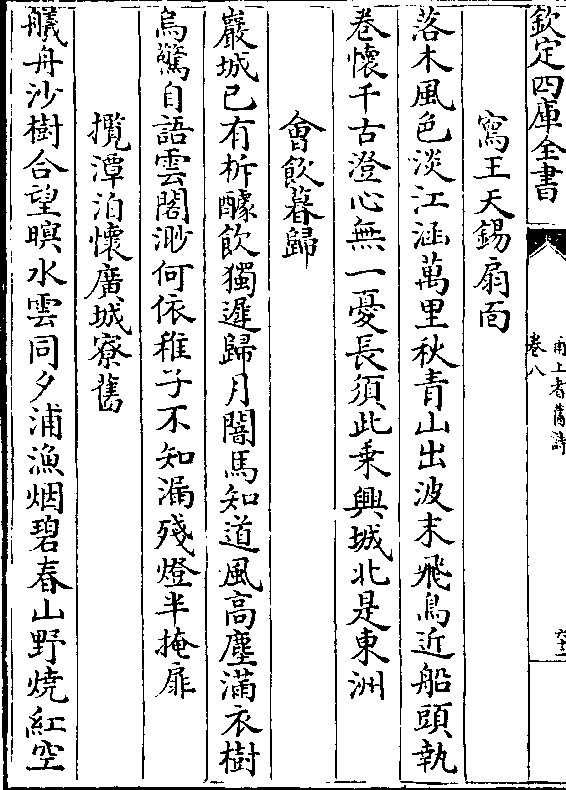 欽定四庫全書
甬上耆舊詩
卷八
六十二
寫王天錫扇面
落木風色淡江涵萬里秋青山出波末飛鳥近船頭執
卷懷千古澄心無一憂長須此乘興城北是東洲
會飲暮歸
嚴城已有柝醵飲獨遲歸月闇馬知道風高塵滿衣樹
烏驚自語雲閣渺何依稚子不知漏殘燈半掩扉
攬潭泊懷廣城寮舊
艤舟沙樹合望暝水雲同夕浦漁烟碧春山野燒紅空